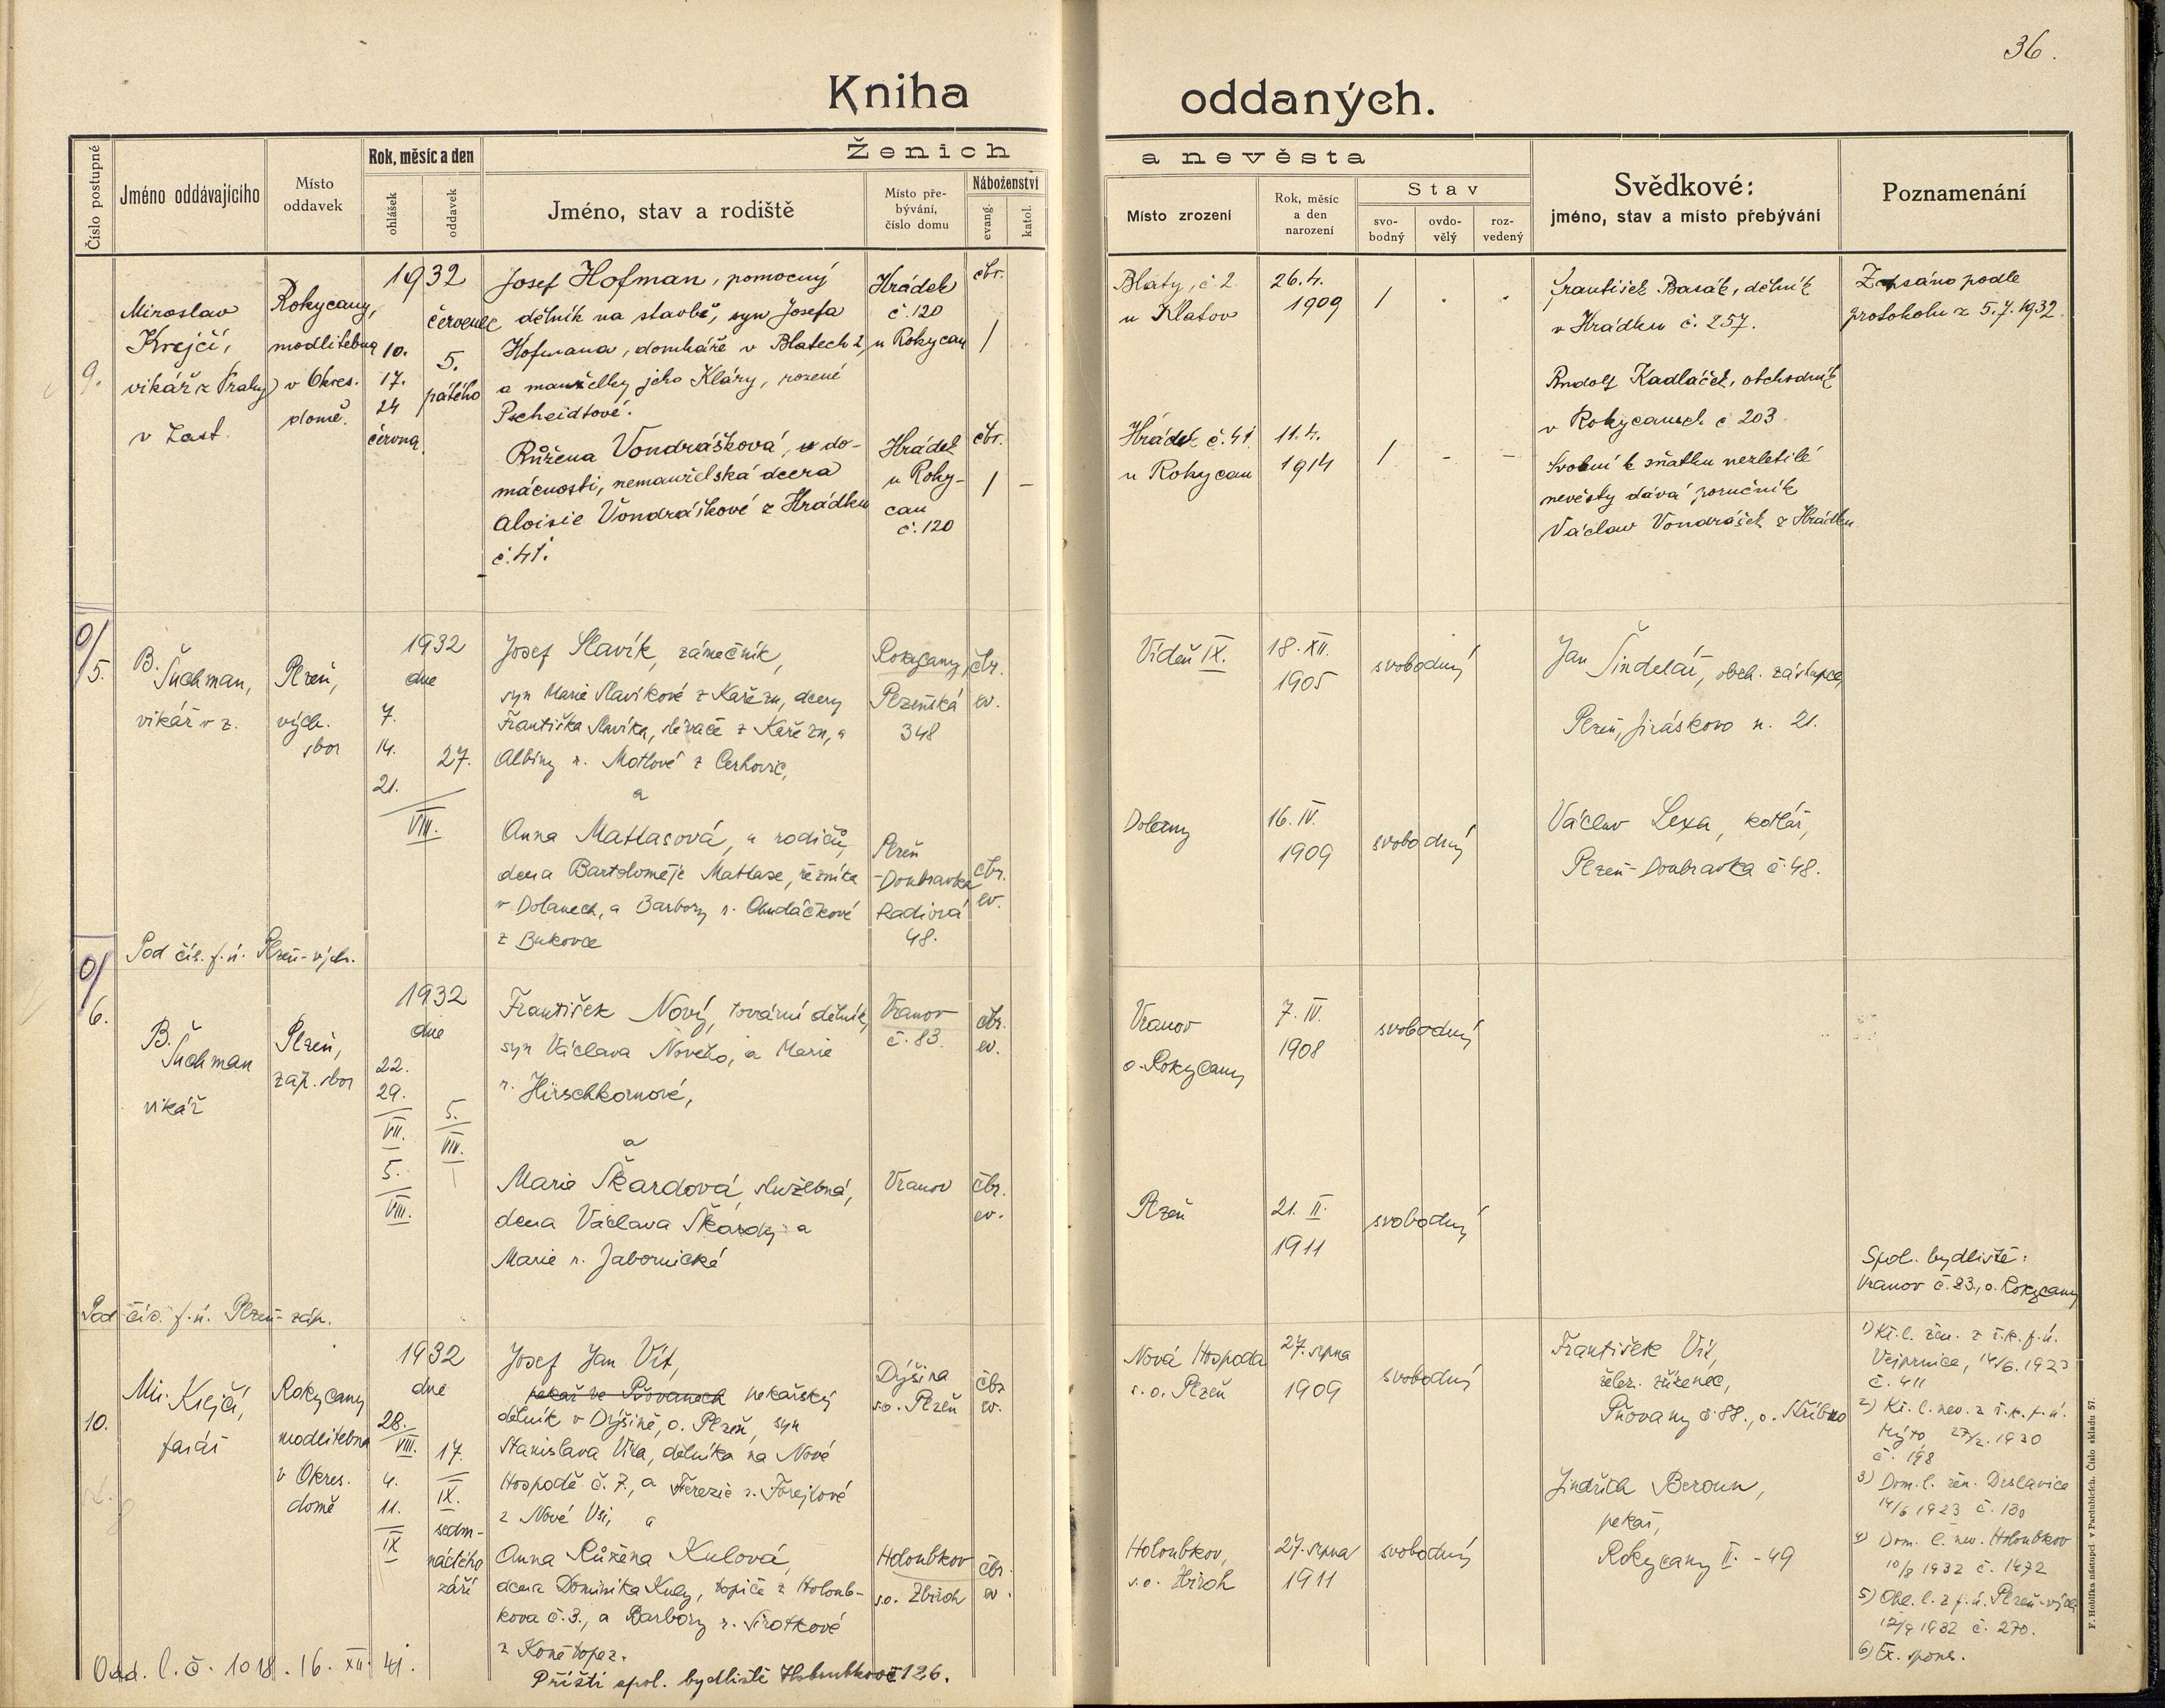 36.
Kniha oddaných.
Číslo postupné
Jméno oddávajícího
Místo
oddavek
Rok, měsíc a den
ohlášek
oddavek
Ženich
a nevěsta
Jméno, stav a rodiště
Místo pře-
bývání,
číslo domu
Náboženství
evang.
katol.
Místo zrození
Rok, měsíc
a den
narození
Stav
svo-
bodný
ovdo-
vělý
roz-
vedený
Svědkové:
jméno, stav a místo přebývání
Poznamenání
9.
Miroslav
Krejčí,
vikář z Prahy
v zast.
Rokycany,
modlitebna
v Okres.
domě.
1932
10.
17.
24
června.
červenec
5.
pátého
Josef Hofman, pomocný
dělník na stavbě, syn Josefa
Hofmana, domkáře v Blatech 2,
a manželky jeho Kláry, rozené
Pscheidtové.
Hrádek
č. 120
u Rokycan
čbr.
/
Růžena Vondrášková, v do-
mácnosti, nemanželská dcera
Aloisie Vondráškové z Hrádku
č. 41.
Hrádek
u Roky-
can
č. 120
čbr.
/ -
Blaty, č. 2
u Klatov
26.4.
1909
/
Hrádek č. 41
u Rokycan
11.4.
1914
/ - -
František Basák, dělník
v Hrádku č. 257.
Rudolf Kadláček, obchodník
v Rokycanech č 203.
Svolení k sňatku nezletilé
nevěsty dává poručník
Václav Vondrášek z Hrádku
Zapsáno podle
protokolu z 5.7.1932.
0/
5.
B.
Šuchman,
vikář v z.
Plzeň,
vých.
sbor
1932
dne
7.
14.
21.
VIII.
27.
Josef Slavík, zámečník,
syn Marie Slavíkové z Kařezu, dcery
Františka Slavíka, slévače z Kařezu, a
Albiny r. Motlové z Cerhovic,
a
Rokycany,
Plzeňská
348
čbr.
ev.
Anna Matlasová, u rodičů,
dcera Bartoloměje Matlase, řezníka
v Dolanech, a Barbory r. Ohudáčkové
z Bukovce
Plzeň
-Doubravka
Radiová
48.
čbr.
ev.
Pod čís. f. ú. Plzeň-vých.
Vídeň IX.
18. XII.
1905
svobodný
Dolany
16. IV.
1909
svobodný
Jan Šindelář, obch. zástupce,
Plzeň, Jiráskovo n. 21.
Václav Lexa, kotlář,
Plzeň-Doubravka č. 48.
0/
6.
B.
Šuchman
vikář
Plzeň,
záp. sbor
1932
dne
22.
29.
VII.
5.
VIII.
5.
VIII.
František Nový, tovární dělník,
syn Václava Nového, a Marie
r. Hirschkornové,
a
Vranov
č. 83.
čbr.
ev.
Marie Škardová, služebná,
dcera Václava Škardy a
Marie r. Jabornické
Vranov
čbr.
ev.
Pod čís. f. ú. Plzeň-záp.
Vranov
o. Rokycany
7. IV.
1908
svobodný
Plzeň
21. II.
1911
svobodný
Spol. bydliště:
Vranov č. 83., o. Rokycany
10.
Mir. Krejčí,
farář
Rokycany
modlitebna
v Okres.
domě
1932
dne
28.
VIII.
4.
11.
IX
17.
IX.
sedm-
náctého
září
Josef Jan Vít,
pekař ve Pňovanech pekařský
dělník v Dýšině, o. Plzeň, syn
Stanislava Víta, dělníka na Nové
Hospodě č. 7., a Terezie r. Forejtové
z Nové Vsi, a
Dýšina
s.o. Plzeň
čbr
ev.
Anna Růžena Kulová,
dcera Dominika Kuly, topiče z Holoub-
kova č. 3., a Barbory r. Sirotkové
z Konětopez.
Holoubkov
s.o. Zbiroh
čbr.
ev.
Odd. l. č. 1018. 16. XII. 41.
Příští spol. bydliště Holoubkov č 126.
Nová Hospoda
s.o. Plzeň
27. srpna
1909
svobodný
Holoubkov,
s.o. Zbiroh
27. srpna
1911
svobodný
František Vít,
želez. zřízenec,
Pňovany č. 88., o. Stříbro
Jindřich Beroun,
pekař,
Rokycany II. - 49
1) Kř. l. žen. z ř. k. f. ú.
Vejprnice, 14/6. 1923
č. 411
2) Kř. l. nev. z ř. k. f. ú.
Mýto, 27/2. 1930
č. 198
3) Dom. l. žen. Drslavice
14/6 1923 č. 180
4) Dom. l. nev. Holoubkov
10/8 1932 č. 1472
5) Ohl. l. z f. ú. Plzeň-vých.
12/9 1932 č. 270.
6) Ex. spons.
F. Hoblíka nástupci v Pardubicích. Číslo skladu 57.